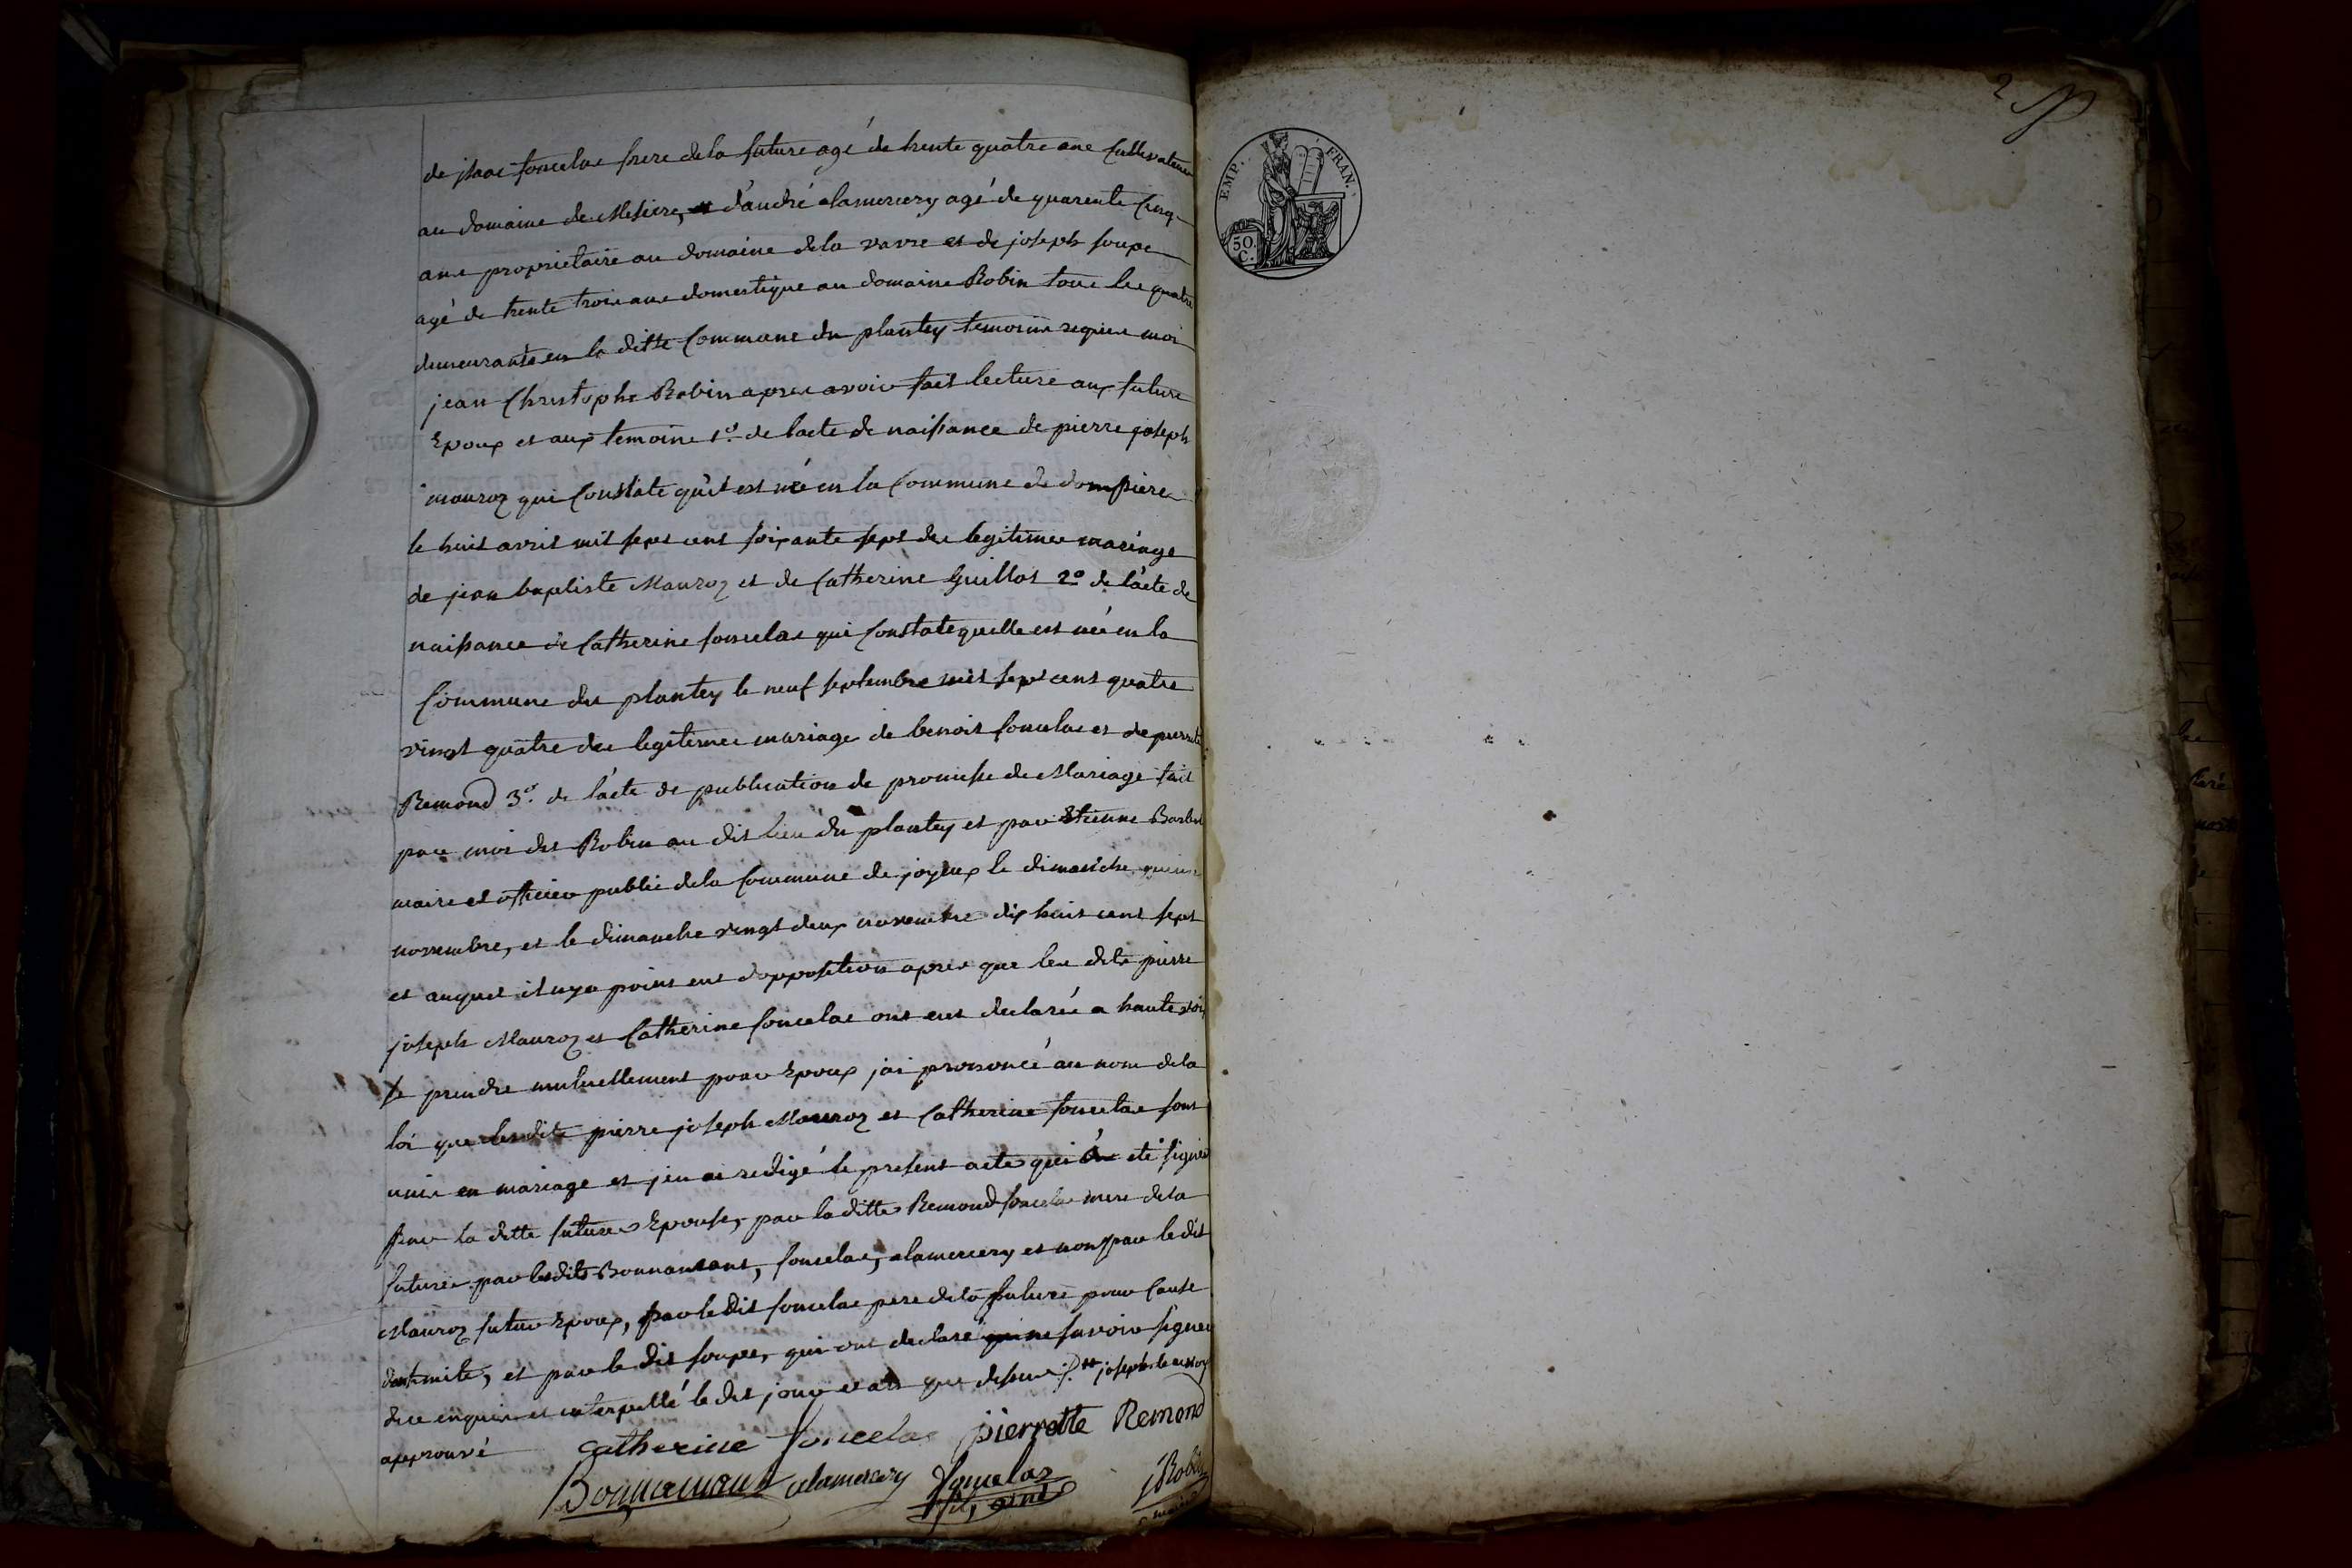 de isaac foncelas frere de la future agé de trente quatre ans Cultivateur
au domaine de Mesiere, d'andré alamercery agé de quarente Cinq
ans proprietaire au domaine de la vavre et de joseph soupe
agé de trente trois ans domestique au domaine Robin tous les quatre
demeurants en la ditte Commune du plantey temoins requis moi
jean Christophe Robin apres avoir fait lecture aux futurs
Epoux et aux temoins 1º. de lacte de naissance de pierre joseph
mauroz qui Constate qu'il est né en la Commune de dompierre
le huit avril mil sept cent soixante sept du legitime mariage
de jean baptiste Mauroz et de Catherine Guillot 2º de lácte de
naissance de Catherine foncelas qui Constate quelle est née en la
Commune du plantey le neuf septembre mil sept cent quatre
vingt quatre du legitime mariage de benoit foncelas et de pierrette
Remond 3º. de lácte de publication de promesse de Mariage fait
par moi dit Robin au dit lieu du plantey et par Etienne
maire et officier public de la Commune de joyeux le dimanche quinze
novembre, et le dimanche vingt deux novembre dix huit cent sept
et auquel il ny a point eut d'opposition apres que les dits pierre
joseph Mauroz et Catherine foncelas ont eut declarée a haute voix
se prendre mutuellement pour Epoux jai prononcé au nom de la
loi que lesdits pierre joseph Mauroz et Catherine foncelas sont
unis en mariage et jen ai redigé le present acte qui à eté signée
par la ditte future Epouse, par la ditte Remond foncelas mere de la
future par lesdits Bonnamant, foncelas, alamercery et non par le dit
Mauroz futur Epoux, par le dit foncelas pere de la future pour Cause
et par le dit soupe, qui ont declaré ne savoir signer
de ce enquis et interpellé le dit jour et an que dessus joseph
approuvé
Catherine foncelas pierrette Remond
Bonnamant alamercery foncelas
fils ainé
JRobin
maire
2
EMP. FRAN.
50.
C.